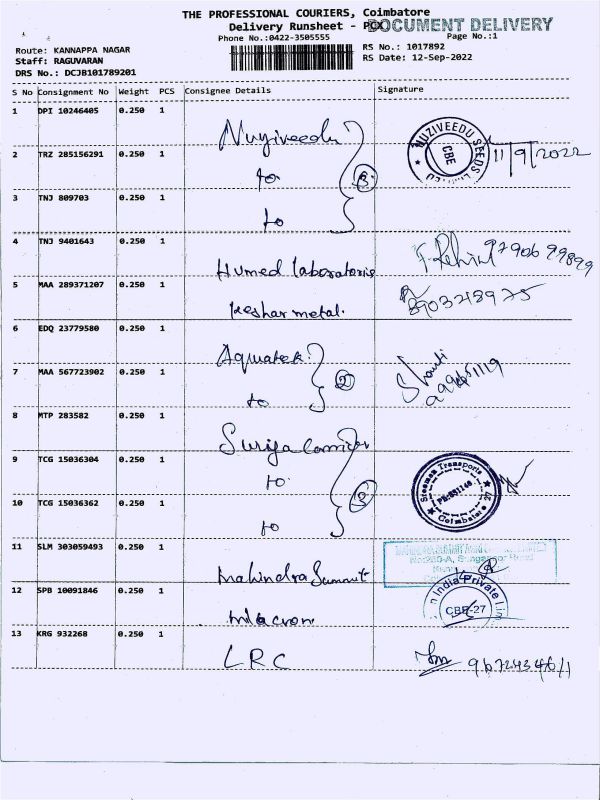 THE PROFESSIONAL COURIERS, Coimbatore
Delivery Runsheet - PCX
DOCUMENT DELIVERY
Phone No.:0422-3505555
Page No.:1
Route: KANNAPPA NAGAR
RS No.: 1017892
Staff: RAGUVARAN
RS Date: 12-Sep-2022
DRS No.: DCJB101789201
S No Consignment No Weight PCS Consignee Details Signature
1 DPI 10246405 0.250 1
Nuziveedu
NUZIVEEDU SEEDS LIMITED
CBE
11/9/2022
2 TRZ 285156291 0.250 1
to
3
3 TNJ 809703 0.250 1
to
4 TNJ 9401643 0.250 1
Humed laboratoris
9790699899
5 MAA 289371207 0.250 1
Keshar metal.
8903218975
6 EDQ 23779580 0.250 1
Aquatek
7 MAA 567723902 0.250 1
to
2
8 MTP 283582 0.250 1
9 TCG 15036304 0.250 1
to
Sreeman Transports
Coimbatore 27
10 TCG 15036362 0.250 1
to
11 SLM 303059493 0.250 1
Mahindra Summit
12 SPB 10091846 0.250 1
milacron
India Private
CBE-27
13 KRG 932268 0.250 1
LRC